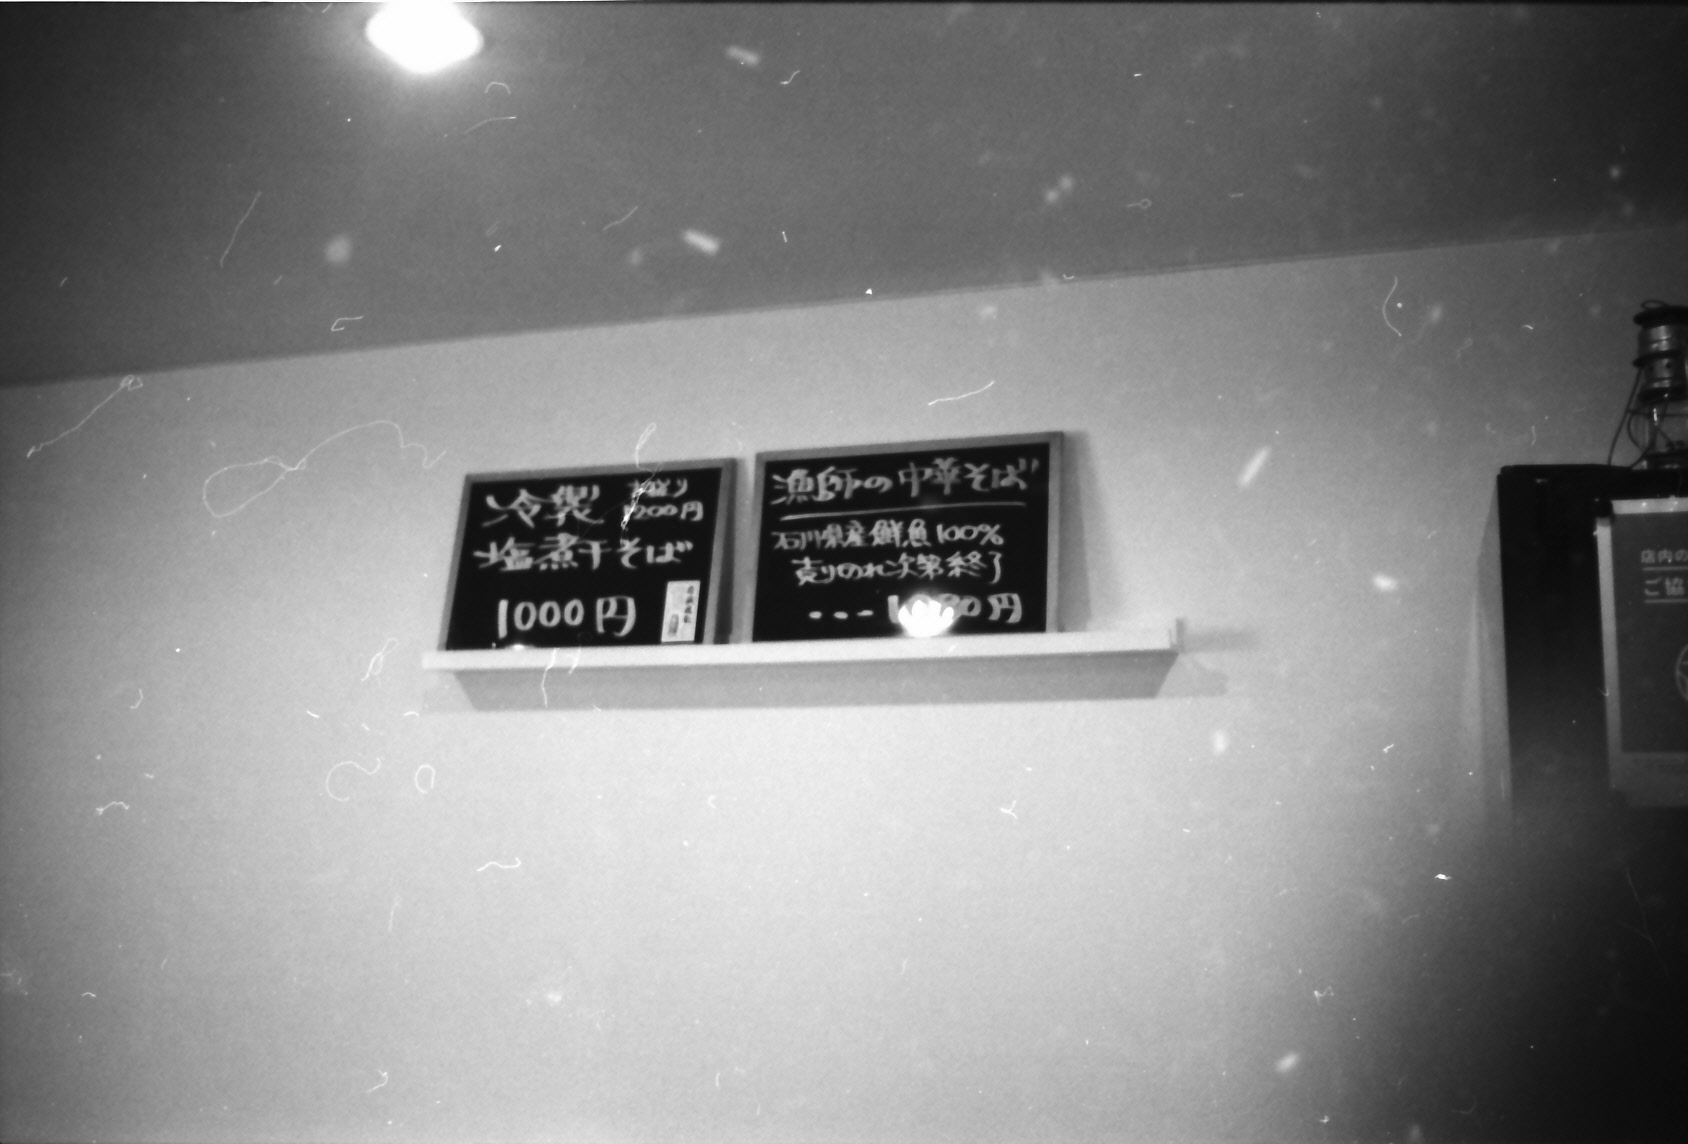 冷製 大盛り
1200円
塩煮干そば
1000円
漁師の中華そば
石川県産鮮魚100%
売りのれ次第終了
円
店内の
ご協